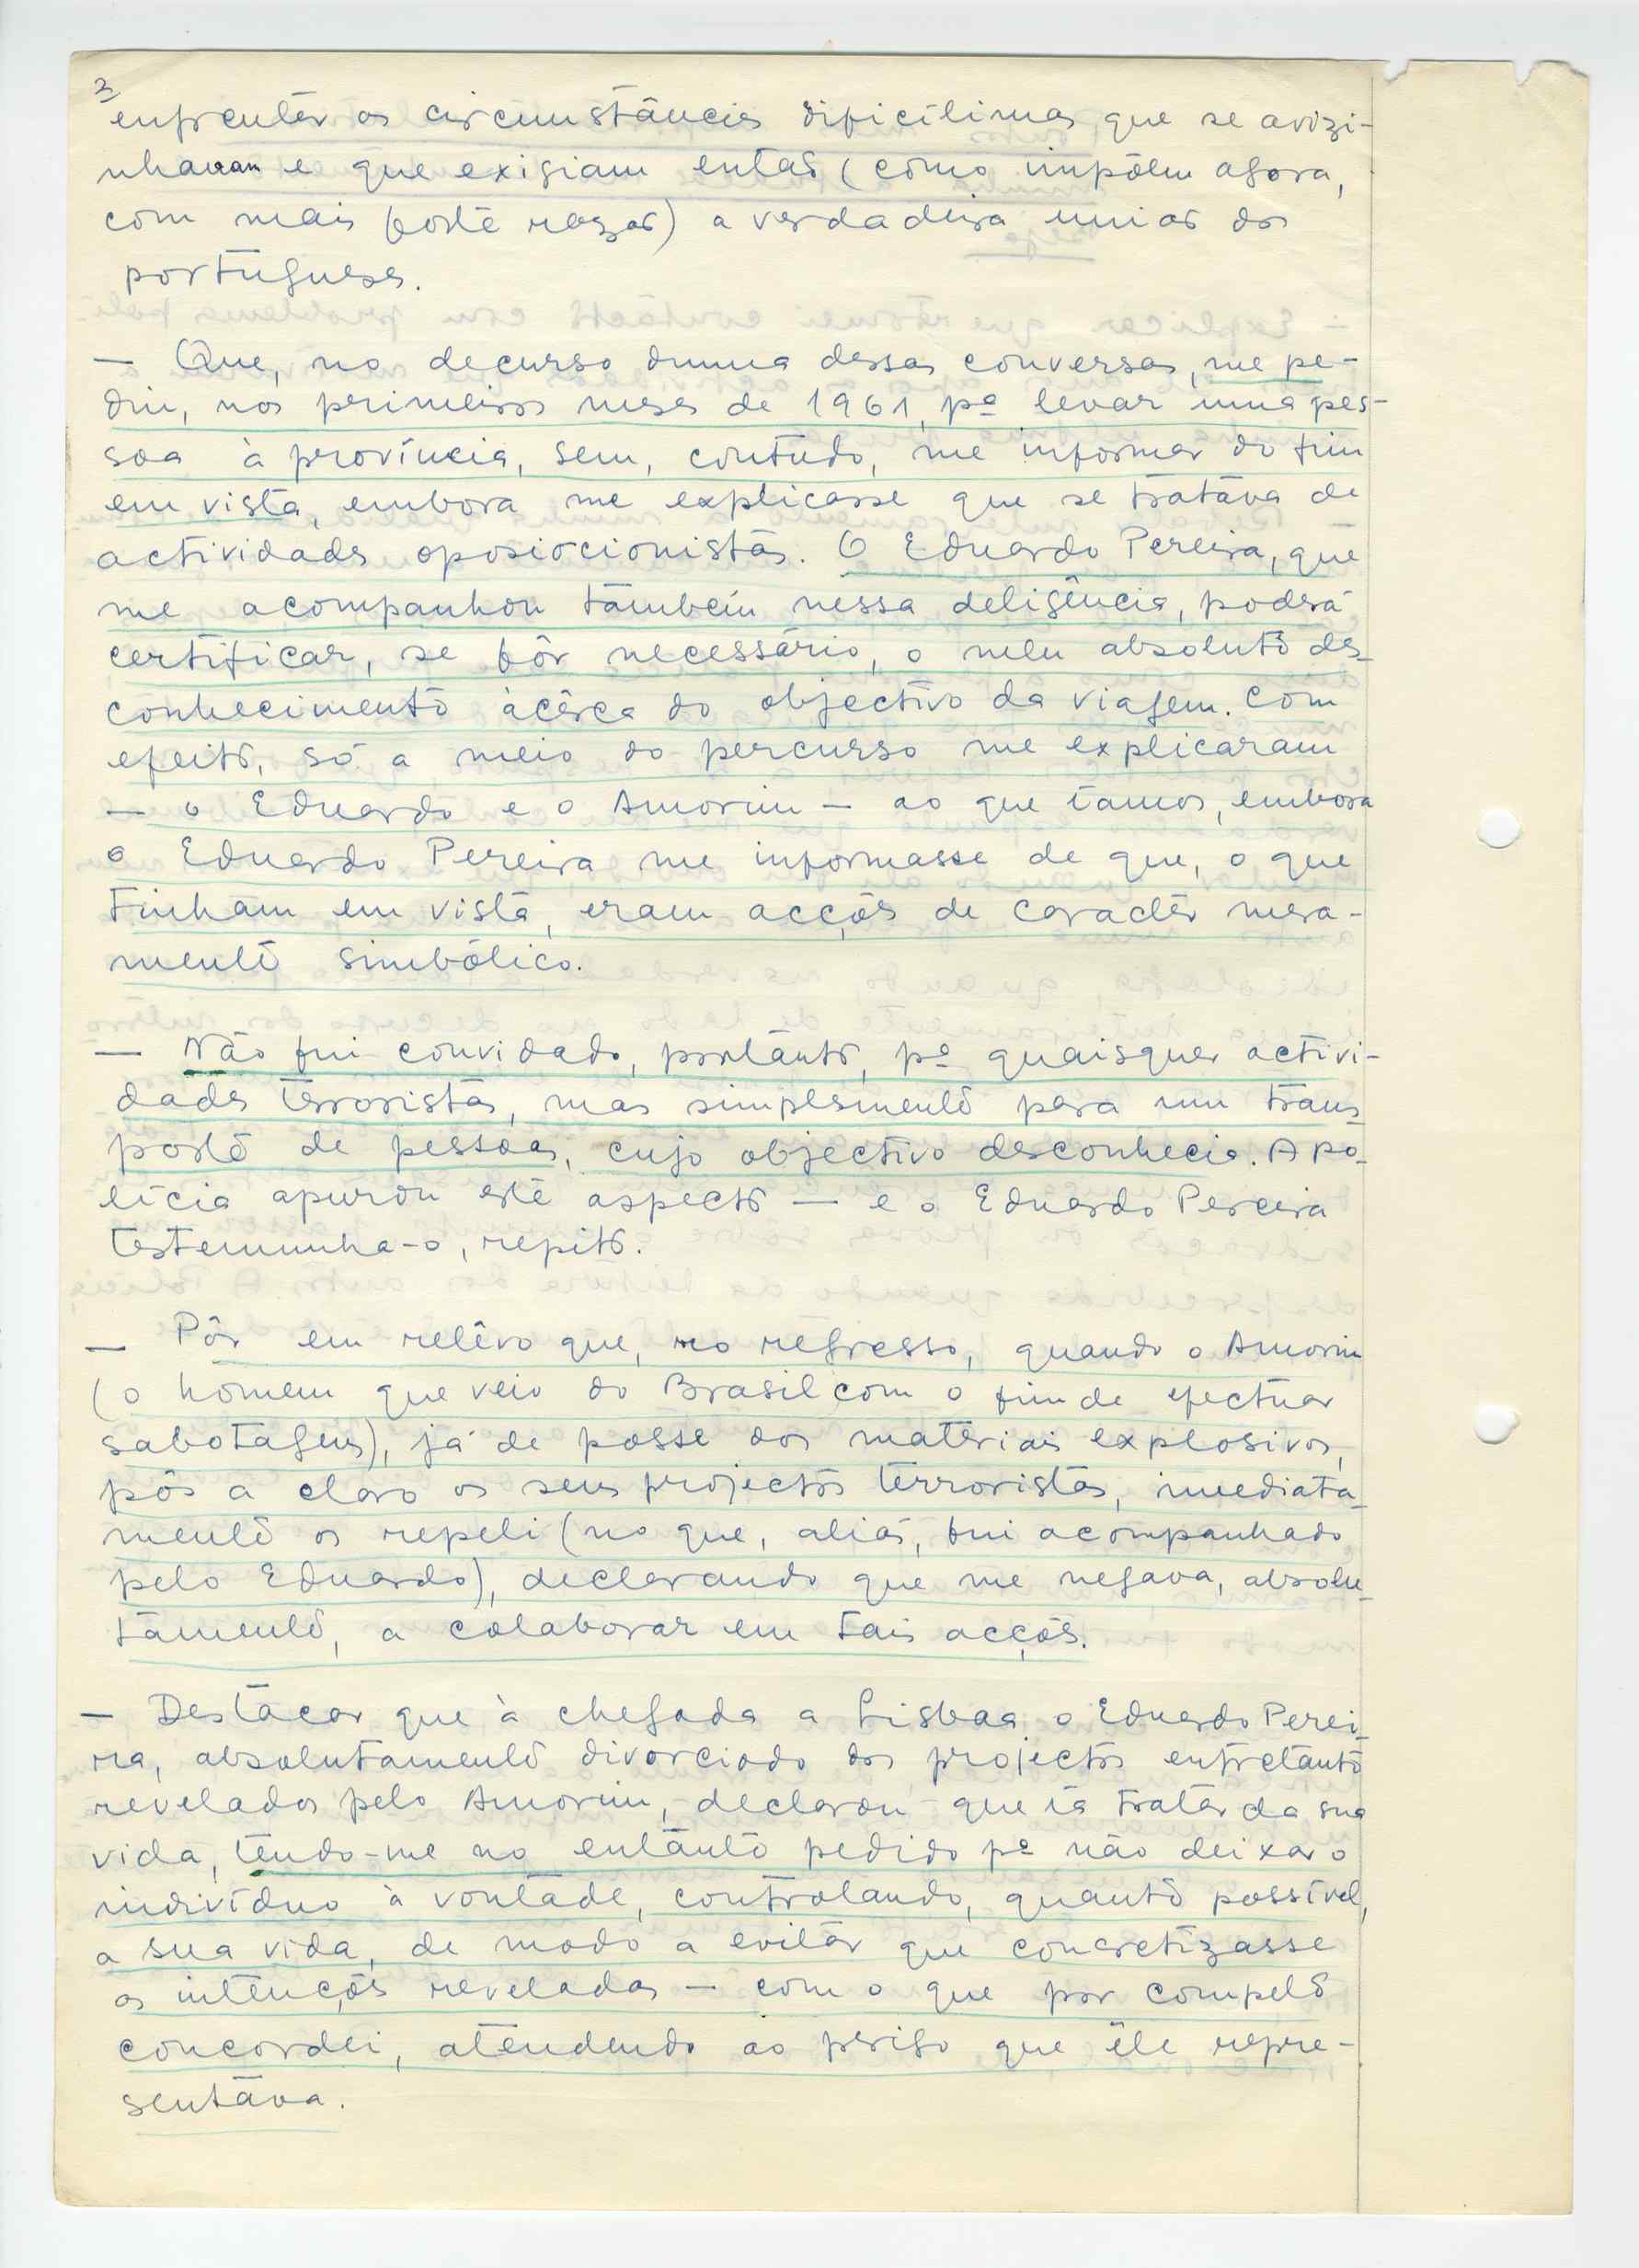 3
enfrentar as circunstâncias dificílimas que se avizi-
nhavam e que exigiam então (como impõem agora,
com mais forte razão) a verdadeira união dos
portugueses.
— Que, no decurso duma dessas conversas, me pe-
diu, nos primeiros meses de 1961, pª levar uma pes-
soa à província, sem, contudo, me informar do fim
em vista, embora me explicasse que se tratava de
actividades oposiocionistas. O Eduardo Pereira, que
me acompanhou também nessa deligência, poderá
certificar, se fôr necessário, o meu absoluto des-
conhecimento àcêrca do objectivo da viagem. Com
efeito, só a meio do percurso me explicaram
— o Eduardo e o Amorim — ao que íamos, embora
o Eduardo Pereira me informasse de que, o que
tinham em vista, eram acções de carácter mera-
mente simbólico.
— Não fui convidado, portanto, pª quaisquer activi-
dades terroristas, mas simplesmente para um trans-
porte de pessoas, cujo objectivo desconhecia. A po-
lícia apurou este aspecto — e o Eduardo Pereira
testemunha-o, repito.
— Pôr em relêvo que, no regresso, quando o Amorim
(o homem que veio do Brasil com o fim de efectuar
sabotagens), já de posse dos materiais explosivos,
pôs a claro os seus projectos terroristas, imediata-
mente os repeli (no que, aliás, fui acompanhado
pelo Eduardo), declarando que me negava, absolu-
tamente, a colaborar em tais acções.
— Destacar que à chegada a Lisboa o Eduardo Perei-
ra, absolutamente divorciado dos projectos entretanto
revelados pelo Amorim, declarou que ia tratar da sua
vida, tendo-me no entanto pedido pª não deixar o
indivíduo à vontade, controlando, quanto possível,
a sua vida, de modo a evitar que concretizasse
as intenções reveladas — com o que por completo
concordei, atendendo ao perigo que êle repre-
sentava.